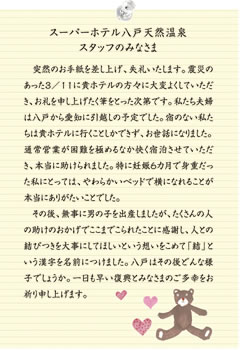 スーパーホテル八戸天然温泉
スタッフのみなさま
突然のお手紙を差し上げ、失礼いたします。震災の
あった3／11に貴ホテルの方々に大変よくしていただ
き、お礼を申し上げたく筆をとった次第です。私たち夫婦
は八戸から愛知に引越しの予定でした。宿のない私た
ちは貴ホテルに行くことしかできず、お世話になりました。
通常営業が困難を極めるなか快く宿泊させていただ
き、本当に助けられました。特に妊娠6カ月で身重だっ
た私にとっては、やわらかいベッドで横になれることが
本当にありがたいことでした。
その後、無事に男の子を出産しましたが、たくさんの人
の助けのおかげでここまでこられたことに感謝し、人と
の結びつきを大事にしてほしいという想いをこめて「結」と
いう漢字を名前につけました。八戸はその後どんな様
子でしょうか。一日も早い復興とみなさまのご多幸をお
祈り申し上げます。